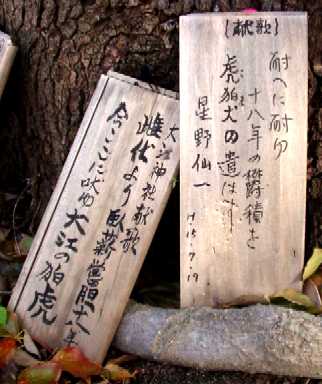 (献歌)
耐へに耐え
十八年の欝積を
虎狛犬の
星野仙一
H.15.7.19
大江神社献歌
雌伏より臥薪嘗胆十八年
今ここに吠ゆ大江の狛虎